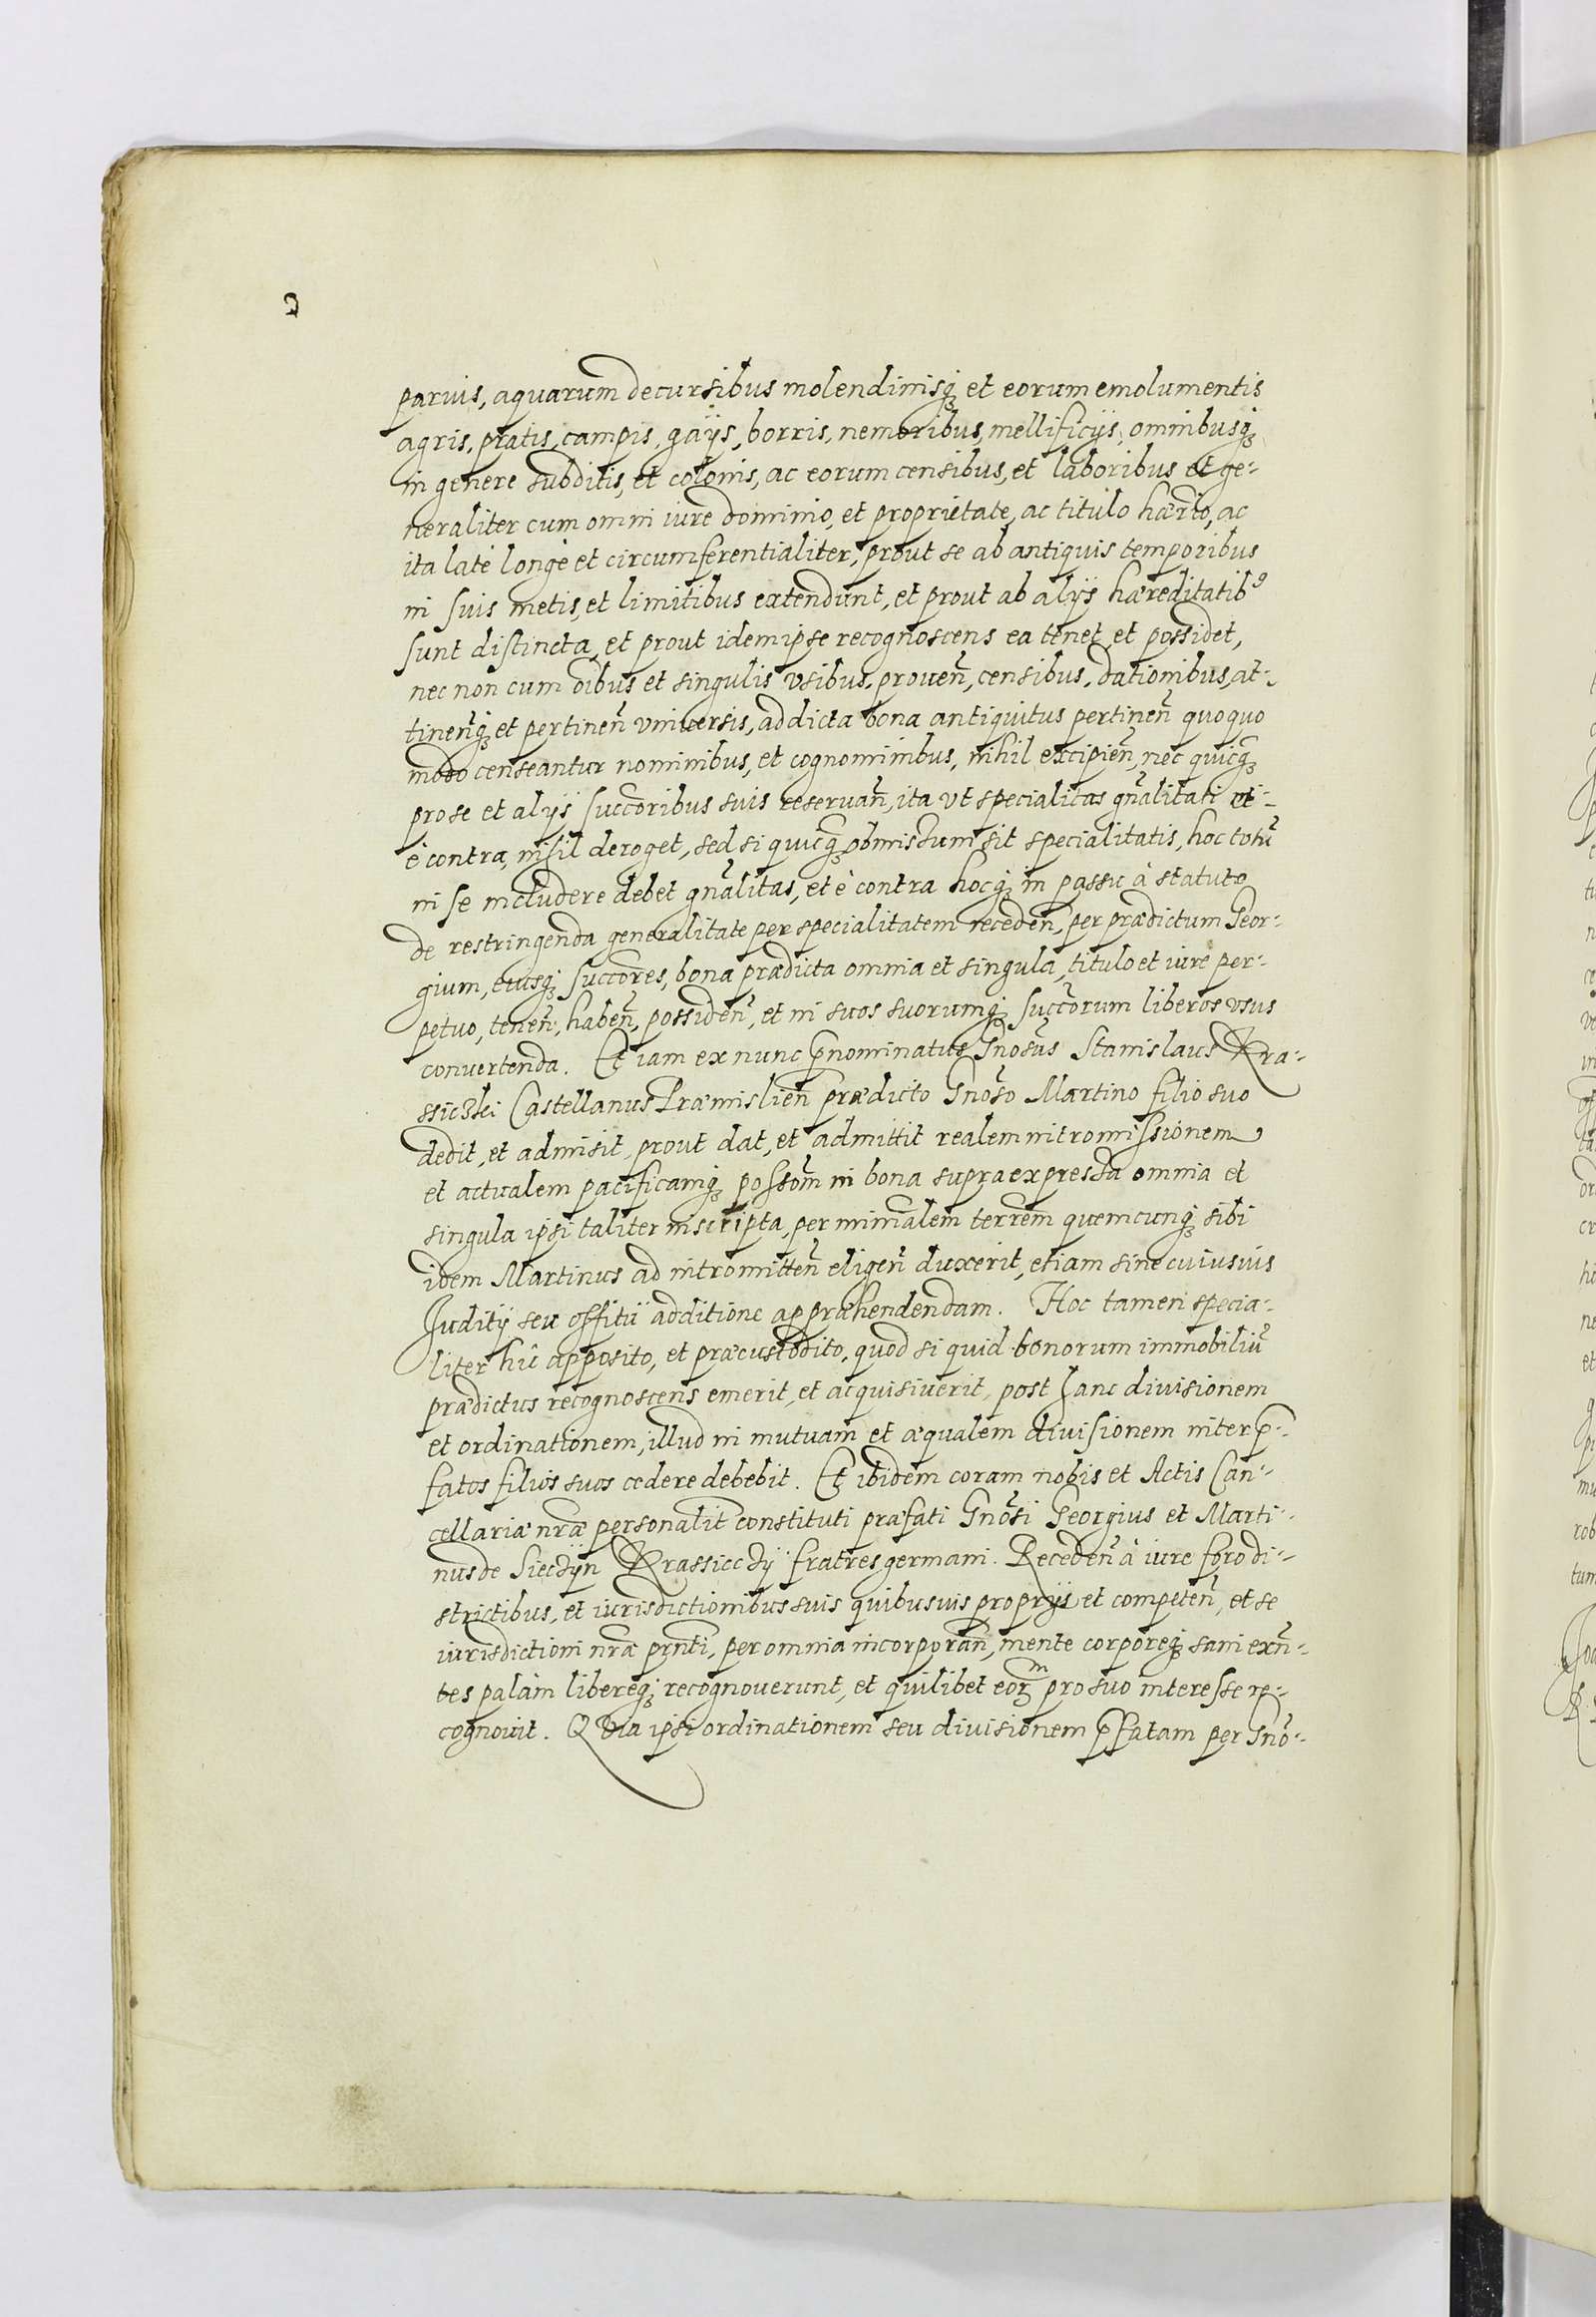 paruis, aquarum decursibus molendinisq̃ et eorum emolumentis
agris, pratis, campis, gaijs, borris, nemoribus, mellificijs, omnibusq̃
in genere subditis, et colonis, ac eorum censibus, et laboribus et ge-
neraliter cum omni iure dominio, et proprietate, ac titulo hært̃o, ac
ita latè longè et circumferentialiter, prout se ab antiquis temporibus
in suis metis, et limitibus extendunt, et prout ab alijs hæreditatib⁹
sunt distincta, et prout idem ipse recognoscens ea tenet, et possidet,
nec non cum õibus et singulis vsibus, prouen̄, censibus, dationibus, at-
tinen̄q̃ et pertinen̄ vniuersis, ad dicta bona antiquitus pertinen̄ quoquo
modo censeantur nominibus, et cognominibus, nihil excipien̄, nec quicq̃
pro se et alijs succõribus suis reseruan̄, ita vt specialitas gñalitati et
è contra, nihil deroget, sed si quicq̃ obmissum sit specialitatis, hoc totũ
in se includere debet gñalitas, et è contra hocq̃ in passu à statuto
de restringenda generalitate per specialitatem receden̄, per prædictum Geor-
gium, eiusq̃ succõres, bona prædicta omnia et singula, titulo et iure per-
petuo, tenen̄, haben̄, possiden̄, et in suos suorumq̃ succõrum liberos vsus
conuertenda. Et iam ex nunc p̃nominatus Gnõsus Stanislaus Kra-
ssiczki Castellanus Præmislien̄ prædicto Gnõso Martino filio suo
dedit, et admisit, prout dat, et admittit realem intromissionem
et actualem pacificamq̃ possõm in bona supra expressa omnia et
singula ipsi taliter inscripta, per minĩalem terrẽm quemcunq̃ sibi
idem Martinus ad intromitten̄ eligen̄ duxerit, etiam sine cuiusuis
Juditij seu offitii additione appræhendendam. Hoc tamen specia-
liter hîc apposito, et præcustodito, quod si quid bonorum immobiliũ
prædictus recognoscens emerit, et acquisiuerit, post hanc diuisionem
et ordinationem, illud in mutuam et æqualem diuisionem inter p̃-
fatos filios suos cedere debebit. Et ibidem coram nobis et Actis Can-
cellariæ nr̃æ personalit̃ constituti præfati Gnõsi Georgius et Marti-
nus de Siecijn Krassiccij fratres germani. Receden̄ à iure foro di-
strictibus, et iurisdictionibus suis quibusuis proprijs et competen̄, et se
iurisdictioni nr̃æ pr̃nti, per omnia incorporan̄, mente corporeq̃ sani exñ-
tes palàm libereq̃ recognouerunt, et quilibet eorᵐ pro suo interesse re-
cognouit. Quia ipsi ordinationem seu diuisionem p̃fatam per Gnõ-